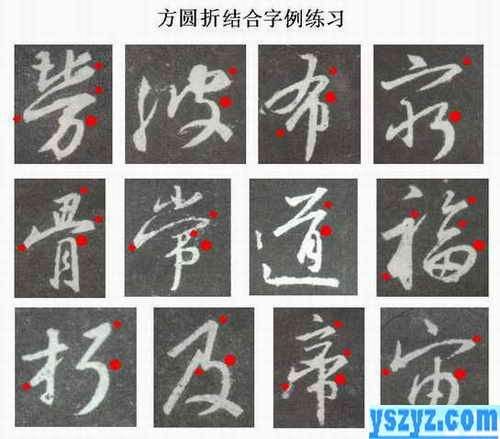 方圆折结合字例练习
勞 波 布
骨 常 道 福
朽 及 帝 宙
yszyz.com